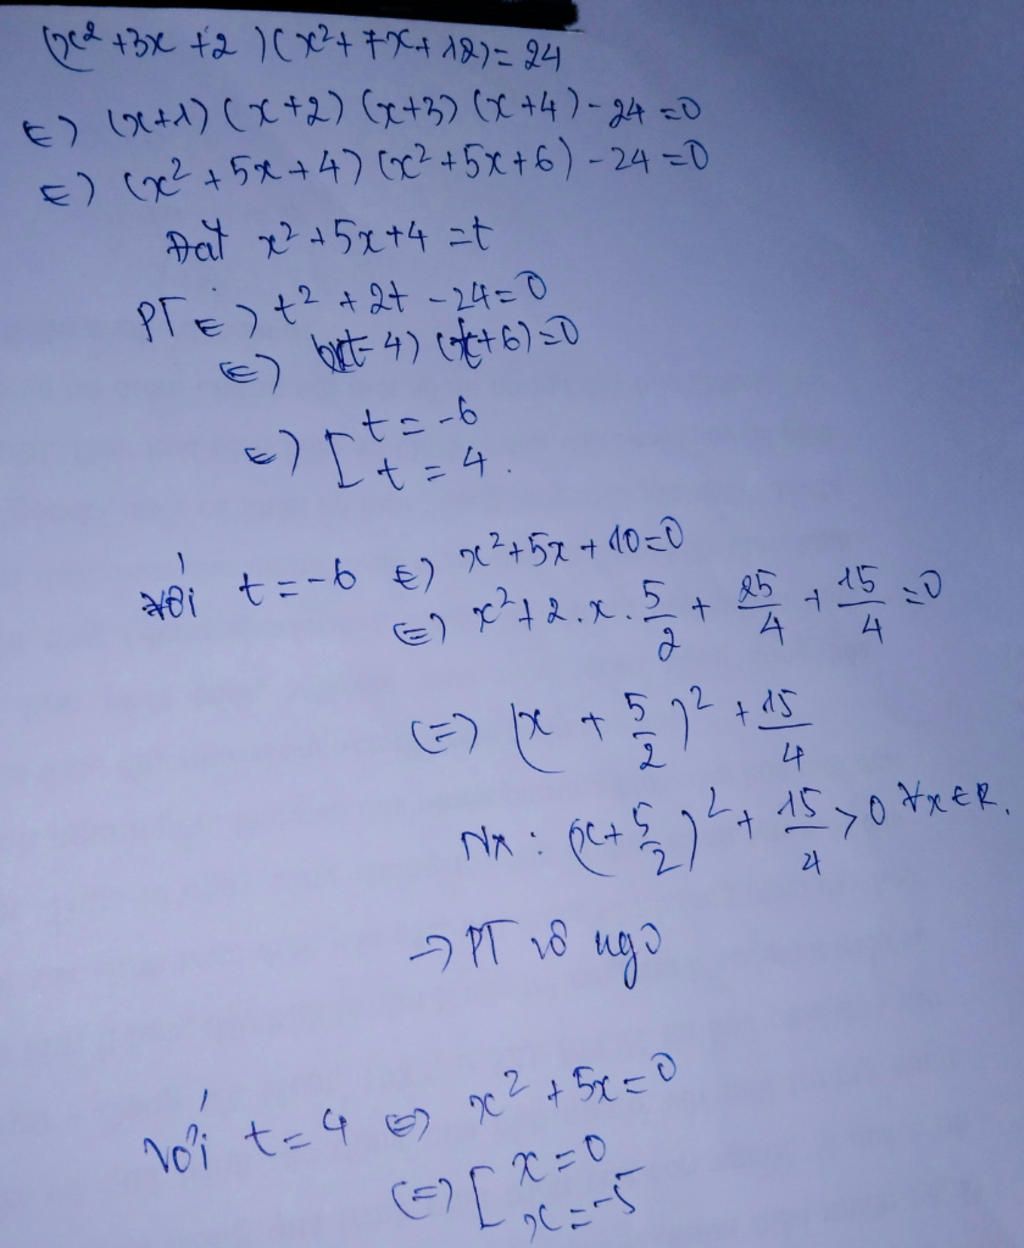 (x² + 3x + 2)(x² + 7x + 12) = 24
<=> (x+1)(x+2)(x+3)(x+4) - 24 = 0
<=> (x² + 5x + 4)(x² + 5x + 6) - 24 = 0
Đặt x² + 5x + 4 = t
PT <=> t² + 2t - 24 = 0
<=> (t - 4)(t + 6) = 0
<=> [ t = -6
t = 4.
Với t = -6 <=> x² + 5x + 10 = 0
<=> x² + 2.x.5/2 + 25/4 + 15/4 = 0
<=> (x + 5/2)² + 15/4
Nx: (x + 5/2)² + 15/4 > 0 ∀x∈R.
→ PT vô ngo
Với t = 4 <=> x² + 5x = 0
<=> [ x = 0
x = -5